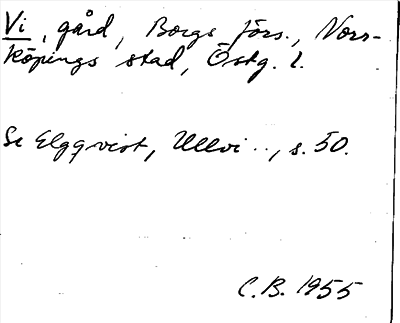 Vi, gård, Borgs förs., Norr-
köpings stad, Östg. l.
Se Elgqvist, Ullvi .., s. 50.
C.B. 1955